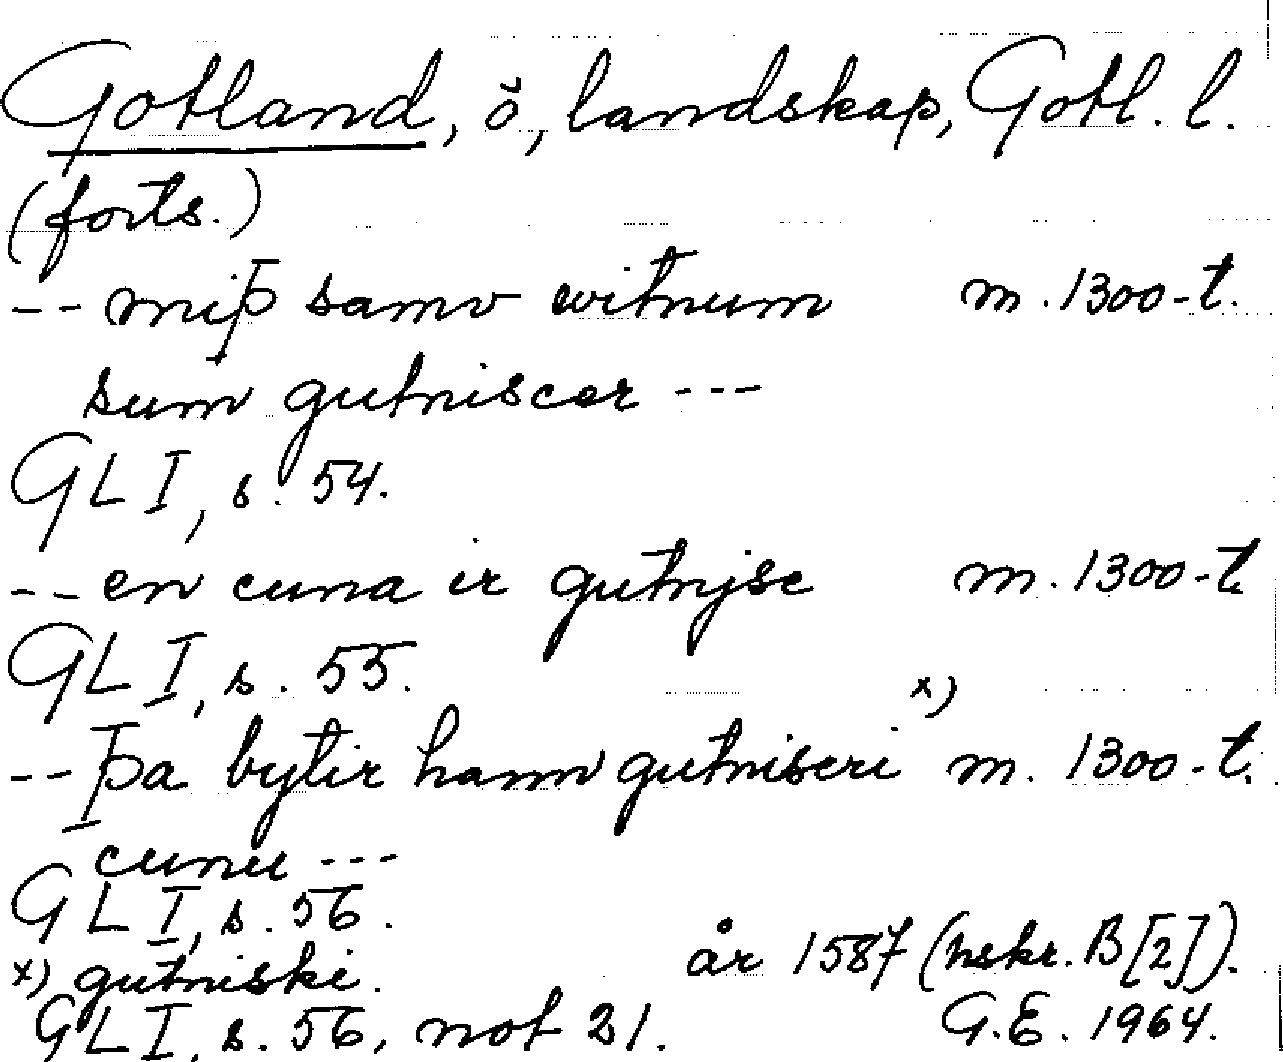 Gotland, ö, landskap, Gotl. l.
(forts.)
-- miþ samv witnum m. 1300-t.
sum gutniscer ---
GL I, s. 54.
-- en cuna ir gutnjsc m. 1300-t.
GL I, s. 55.
-- þa bytir hann gutniscri x) m. 1300-t.
cunu ---
GL I, s. 56.
x) gutniski. år 1587 (hskr. B [2]).
GL I, s. 56, not 21. G.E. 1964.